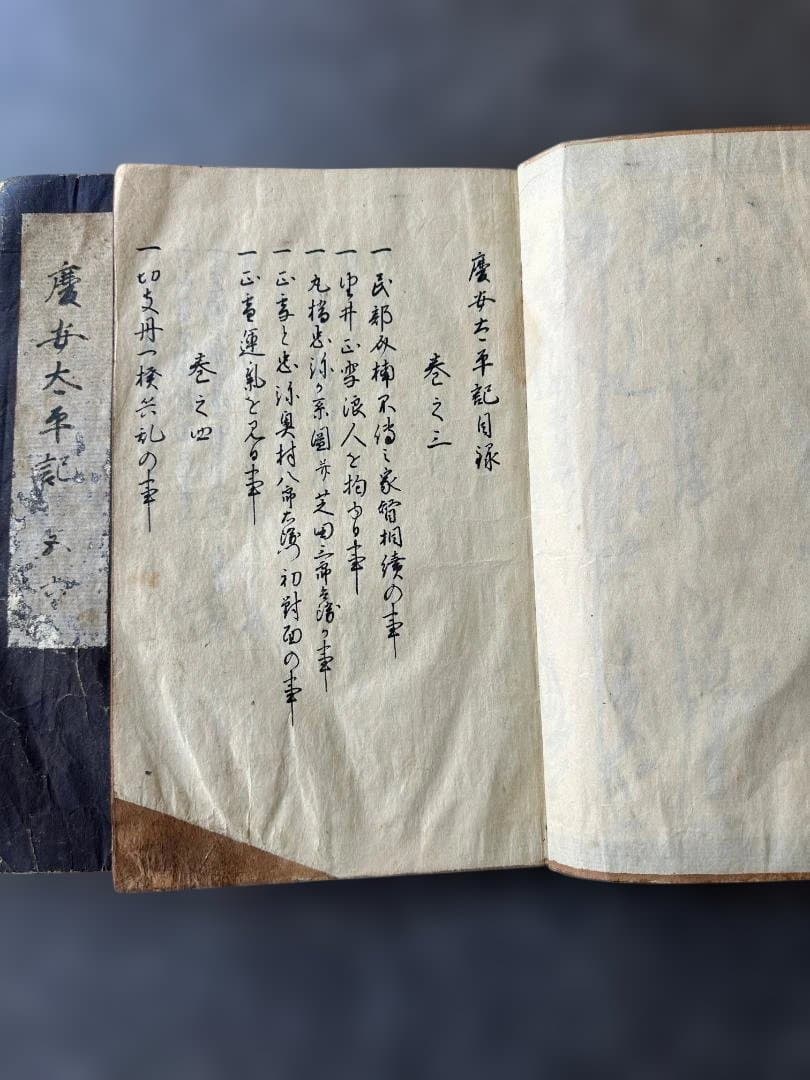 慶安太平記目録
巻之三
一民部丞楠不傳之家督相續の事
一由井正雪浪人を抱る事
一丸橋忠弥か系圖并芝田三郎兵衛か事
一正雪と忠弥奥村八郎右衛門初對面の事
一正雪運氣を見る事
巻之四
一切支丹一揆兵乱の事
慶安太平記 五六